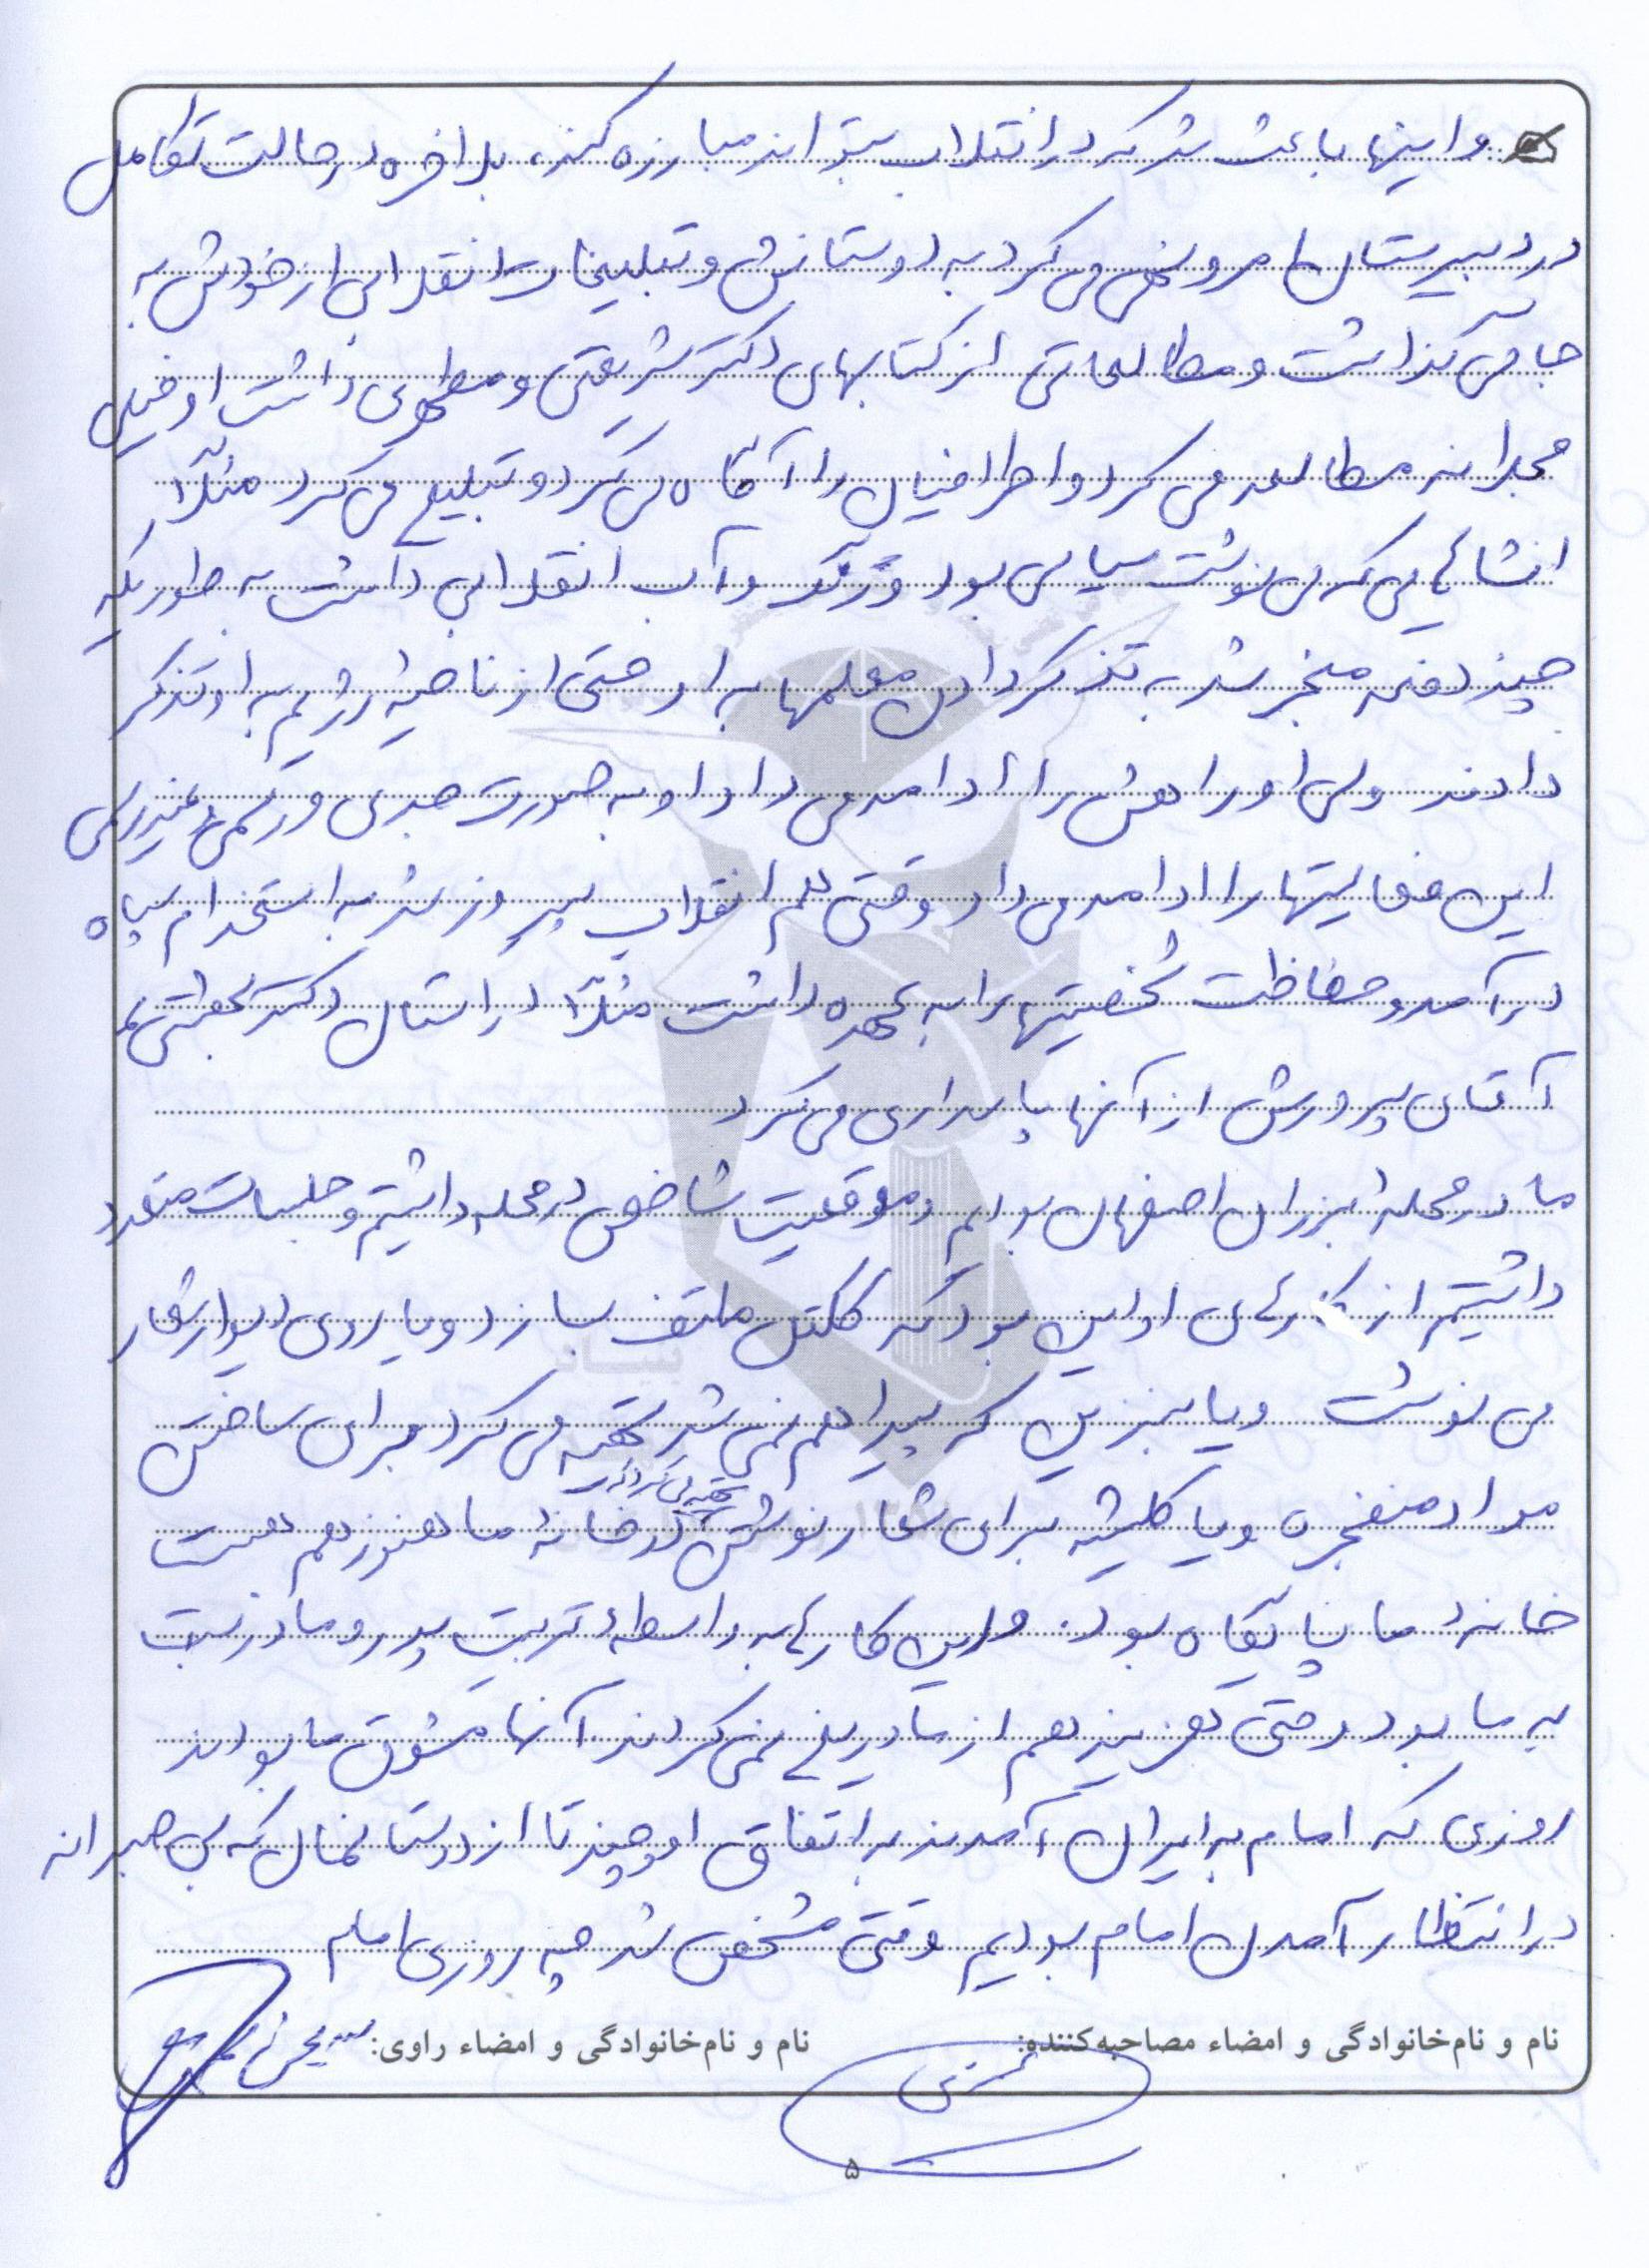 و اینها باعث شد که در انقلاب بتواند مبارزه کند، بلاخره در حالت تکامل
در دبیرستان امر و نهی می کرد به دوستانش و تبلیغات انقلابی از خودش به
جا می گذاشت و مطالعاتی از کتابهای دکتر شریعتی و مطهری داشت او خیلی
مجدانه مطالعه می کرد و اطرافیان را آگاه می کرد و تبلیغ می کرد مثلاً
انشاهایی که می نوشت سیاسی بود و رنگ و آب انقلابی داشت به طوریکه
چند دفعه منجر شد به تذکر دادن معلمها به او حتی از ناحیه رژیم به او تذکر
دادند ولی او راهش را ادامه می داد او به صورت جدی و رسمی و غیر رسمی
این فعالیتها را ادامه می داد وقتی هم انقلاب پیروز شد به استخدام سپاه
در آمد و حفاظت شخصیتها را به عهده داشت مثلاً در استان دکتر بهشتی یا
آقای پرورش از آنها پاسداری می کرد
ما در محله ابزران اصفهان بودیم و موقعیت شاخصی در محله داشتیم و جلسات متعدد
داشتیم از کارهای اولین بود که کوکتل ملتف بسازد و یا روی دیوار شعار
می نوشت و یا بنزین که پیدا هم نمی شد تهیه می کرد برای ساختن
مواد منفجره و یا کلیشه برای شعار نوشتن تهیه می کردند در خانه ما هنوز هم هست
خانه ما پایگاه بود. و این کارها به واسطه تربیت پدر و مادر نسبت
به ما بود و حتی هزینه هم از ما دریغ نمی کردند آنها مشوق ما بودند
روزی که امام به ایران آمدند به اتفاق او و چند تا از دوستانمان که بی صبرانه
در انتظار آمدن امام بودیم وقتی مشخص شد چه روزی امام
نام و نام‌خانوادگی و امضاء مصاحبه‌کننده:
نام و نام‌خانوادگی و امضاء راوی:
۵